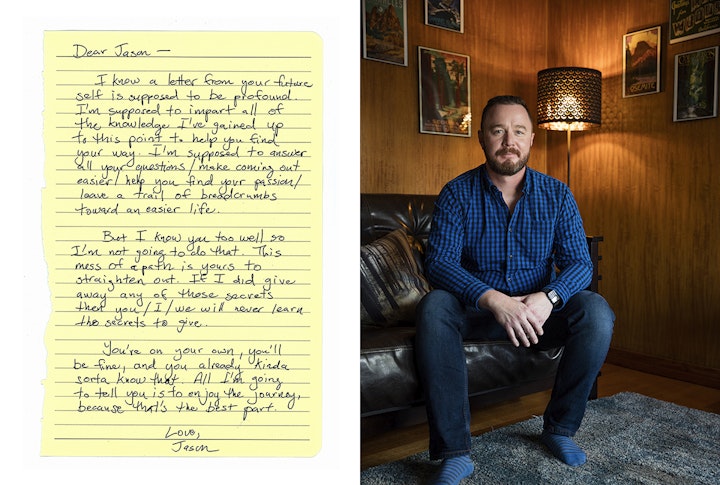 Dear Jason —
I know a letter from your future
self is supposed to be profound.
I'm supposed to impart all of
the knowledge I've gained up
to this point to help you find
your way. I'm supposed to answer
all your questions/make coming out
easier/help you find your passion/
leave a trail of breadcrumbs
toward an easier life.
But I know you too well so
I'm not going to do that. This
mess of a path is yours to
straighten out. If I did give
away any of those secrets
then you/I/we will never learn
the secrets to give.
You're on your own, you'll
be fine, and you already kinda
sorta know that. All I'm going
to tell you is to enjoy the journey,
because that's the best part.
Love,
Jason